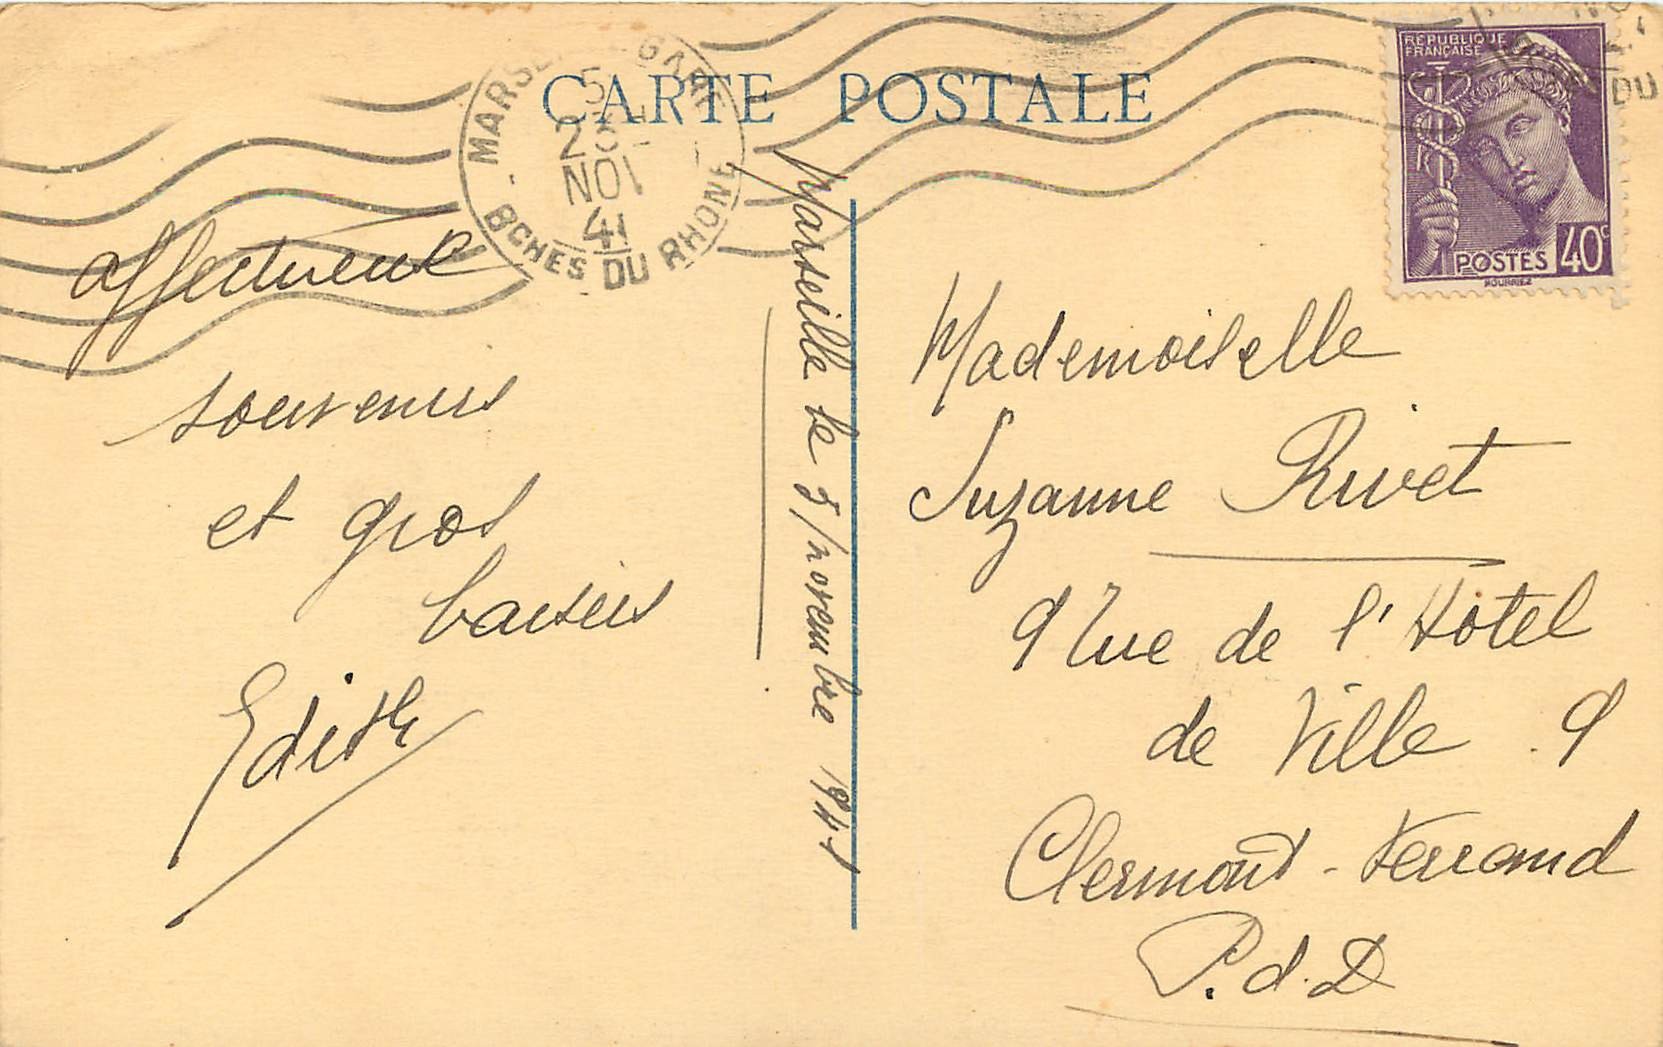 CARTE POSTALE
GARE
5
23
41
BCHES DU RHONE
RÉPUBLIQUE
FRANÇAISE
POSTES 40c
DU
affectueux
souvenirs
et gros
baisers
Edith
Marseille le 5/novembre 1941
Mademoiselle
Suzanne Rivet
9 rue de l'Hôtel
de Ville 9
Clermont-Ferrand
P.d.D